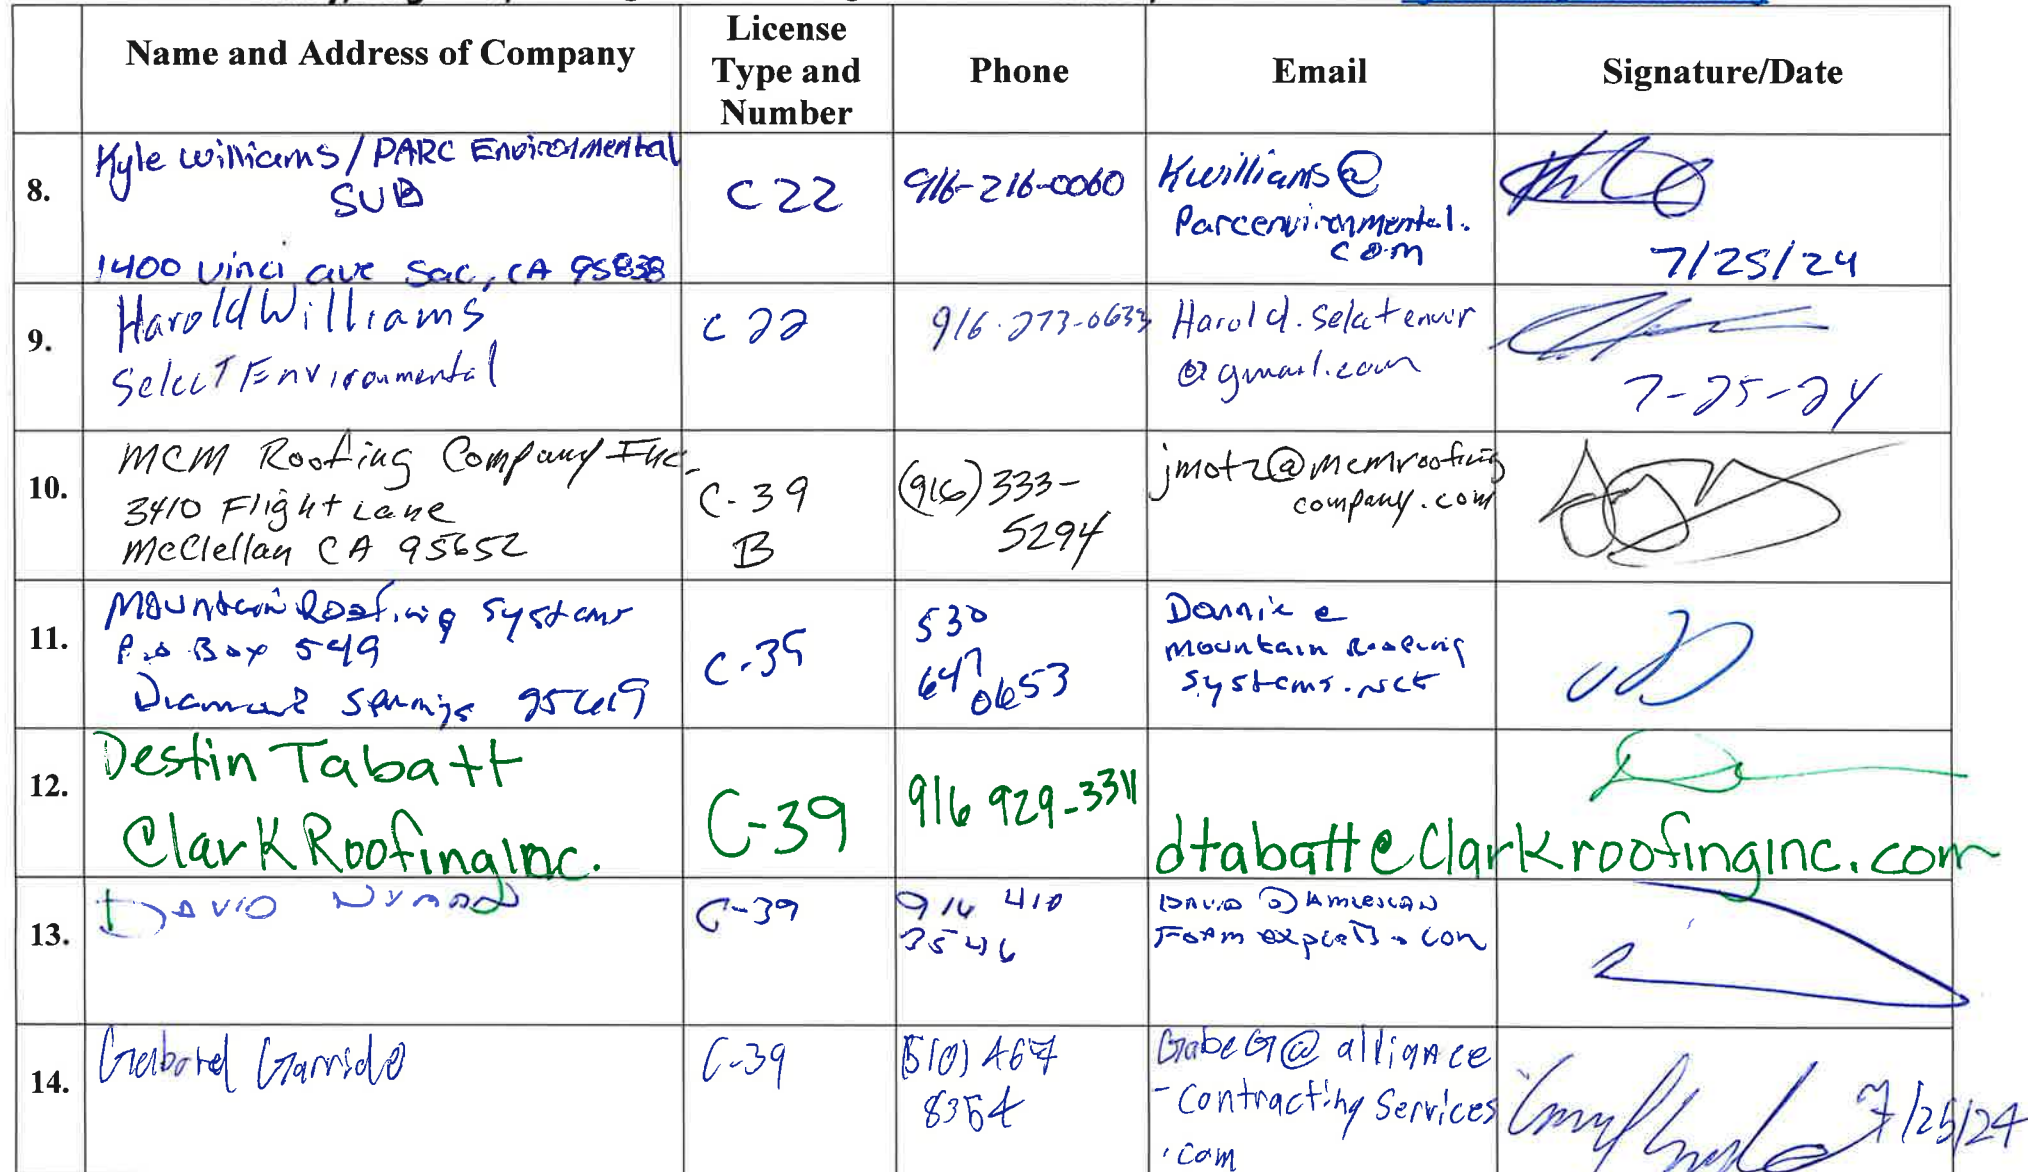 Name and Address of Company
License
Type and
Number
Phone
Email
Signature/Date
8.
Kyle Williams/PARC Environmental
SUB
1400 Vinci ave Sac, CA 95838
C22
916-216-0060
Kwilliams@
Parcenvironmental.
com
7/25/24
9.
Harold Williams
Select Environmental
C22
916-273-0633
Harold.selectenvir
@gmail.com
7-25-24
10.
MCM Roofing Company Inc.
3410 Flight Lane
McClellan CA 95652
C-39
B
(916)333-
5294
jmotz@mcmroofing
company.com
11.
Mountain Roofing Systems
P.o Box 549
Diamond Springs 95619
C-39
530
647
0653
Donnie e
Mountain Roofing
Systems.net
12.
Destin Tabatt
Clark Roofing Inc.
C-39
916 929-3311
dtabatt@Clarkroofinginc.com
13.
DAVID
C-39
916 410
3546
DAVID @ AMERICAN
FOAM experts.com
14.
Gabriel Garrido
C-39
(510) 467
8354
GabeG@alliance
-Contracting Services
.com
7/25/24